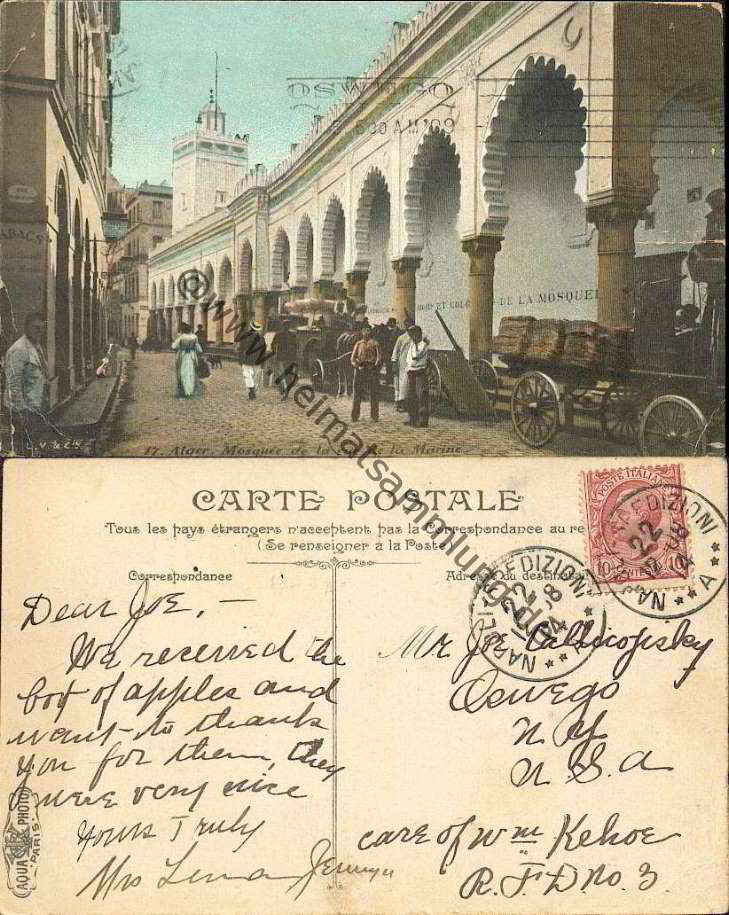 OSWEGO
630 AM '09
TABACS
DE LA MOSQUEE
L.V. & Cie
17. Alger. Mosquée de la Rue de la Marine
© www.heimatsammlung.de
CARTE POSTALE
Tous les pays étrangers n'acceptent pas la Correspondance au
(Se renseigner à la Poste)
Correspondance
Adresse du destinataire
POSTE ITALIANE
10 CENTESIMI 10
NAPOLI
22
12 08
NAPOLI
22
12 08
Dear Joe, –
We received the
box of apples and
want to thank
you for them, they
were very nice
Yours Truly
Mrs
Mr Joe
Oswego
N Y
U S a
care of Wm Kehoe
R. F. D. No. 3.
AQUA PHOTO
PARIS